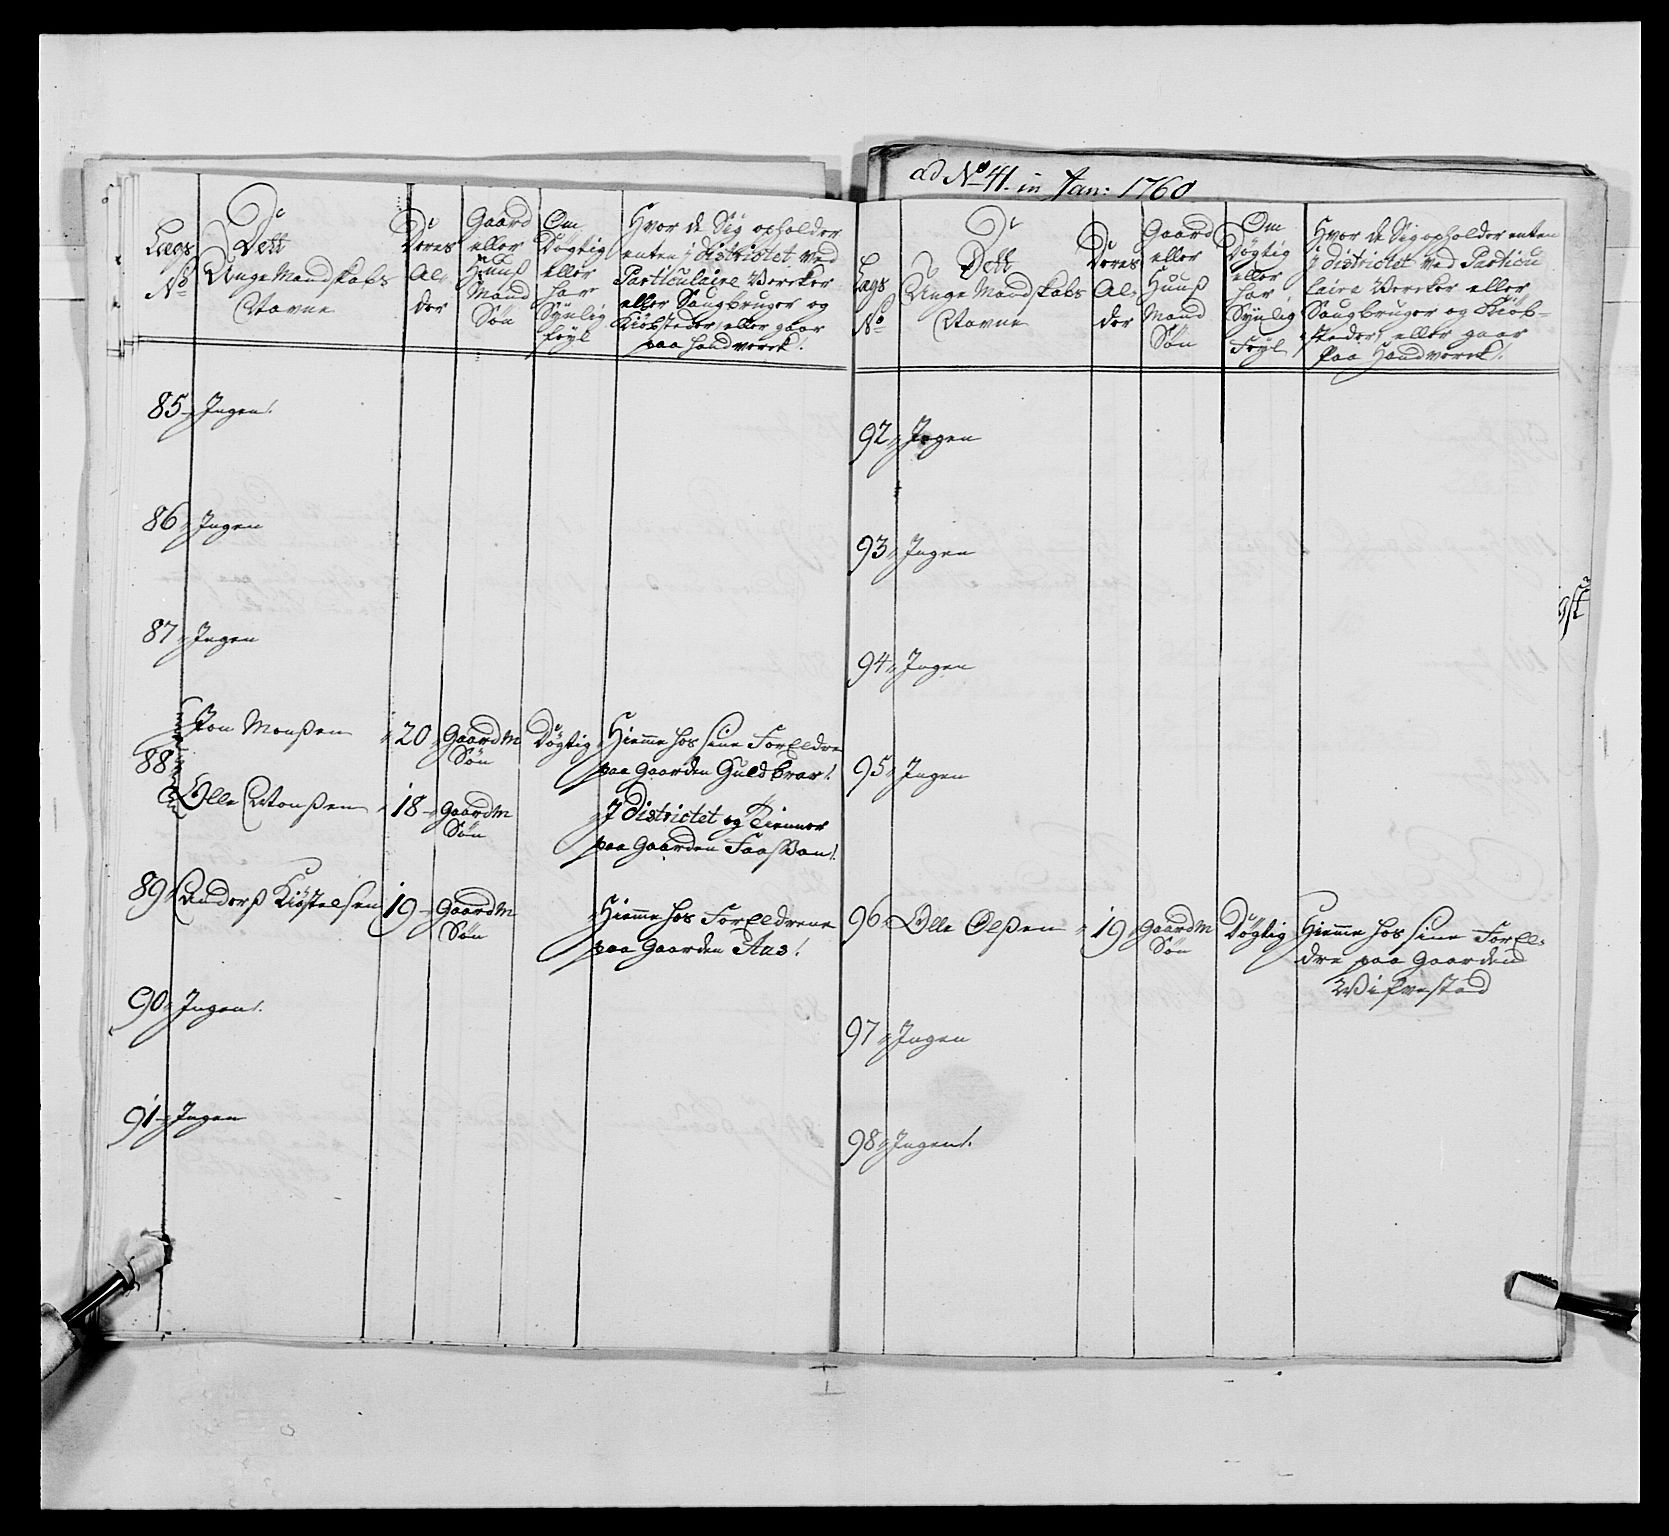 Lægs
No
Dett
Unge Mandskabs
Navne
Deres
Al-
der
Gaard
eller
Huuß
Mand
Søn
Om
Døgtig
eller
har
Synlig
feyl
Hvor de Sig opholder
enten i Districtet ved
Particulaire Vercker
eller Saugbruger og
Kiøbsteder, eller gaar
paa handverck/.
85 Ingen/.
86 Ingen
87 Ingen
88
Jon Monßen 20 Gaardm Søn Døgtig Hiemme hos sine Forældre
paa Gaarden Guldbrar/.
Olle Monßen 18 Gaardm Søn I Districtet og Tienner
paa Gaarden
89 Anderß Kiøstelsen 19 Gaardm Søn Hiemme hos Forældrene
paa Gaarden Aas/.
90 Ingen/.
91 Ingen
ad No 41. in Jan: 1760
Lægs
No
Dett
Unge Mandskabs
Navne
Deres
Al-
der
Gaard
eller
Huuß
Mand
Søn
Om
Døgtig
eller
har
Synlig
Feyl
Hvor de Sig opholder enten
I Districtet ved Particu
laire Vercker eller
Saugbruger og Kiøb-
steder, eller gaar
Paa Handverck/.
92 Ingen
93 Ingen
94 Ingen
95 Ingen
96 Olle Olßen 19 Gaardm Søn Døgtig Hiemme hos sine Foræl-
dre paa Gaarden
97 Ingen
98 Ingen/.